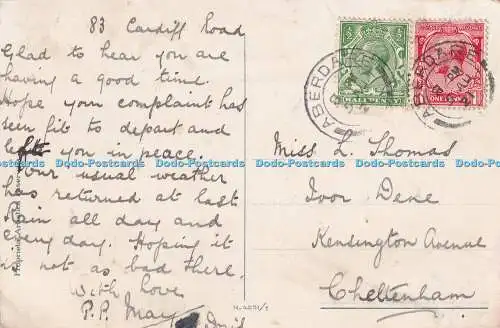 83 Cardiff Road
Glad to hear you are
having a good time.
Hope your complaint has
seen fit to depart and
left you in peace.
Our usual weather
has returned at last
Rain all day and
every day. Hoping it
is not as bad there.
With love
P.P. May
Miss L. Thomas
Ivor Dene
Kensington Avenue
Cheltenham
ABERDARE
ABERDARE
PM
AU
21
HALF PENNY
ONE
Dodo-Postcards Dodo-Postcards Dodo-Postcards Dodo-Postcards Dodo-Postcards